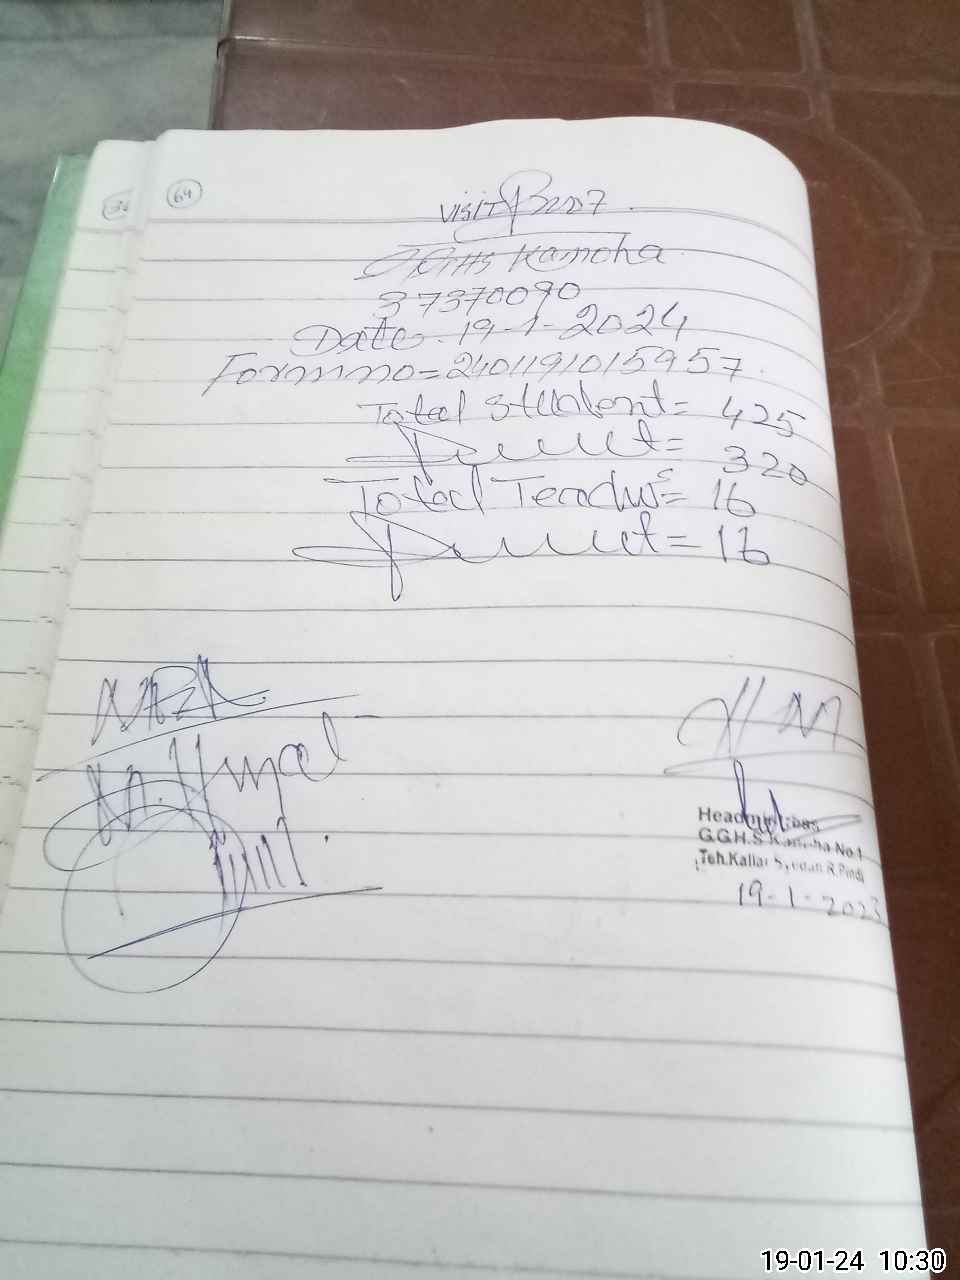 64
visit
GGHS Kamoha
37370090
Date. 19-1-2024
Form no = 2401191015957.
Total student = 425
= 320
Total Teachers = 16
= 16
MEA
HM
Headmistress
G.G.H.S Kanoha No.1
Teh.Kallar Syedan R.Pindi
19-1-2023
19-01-24 10:30